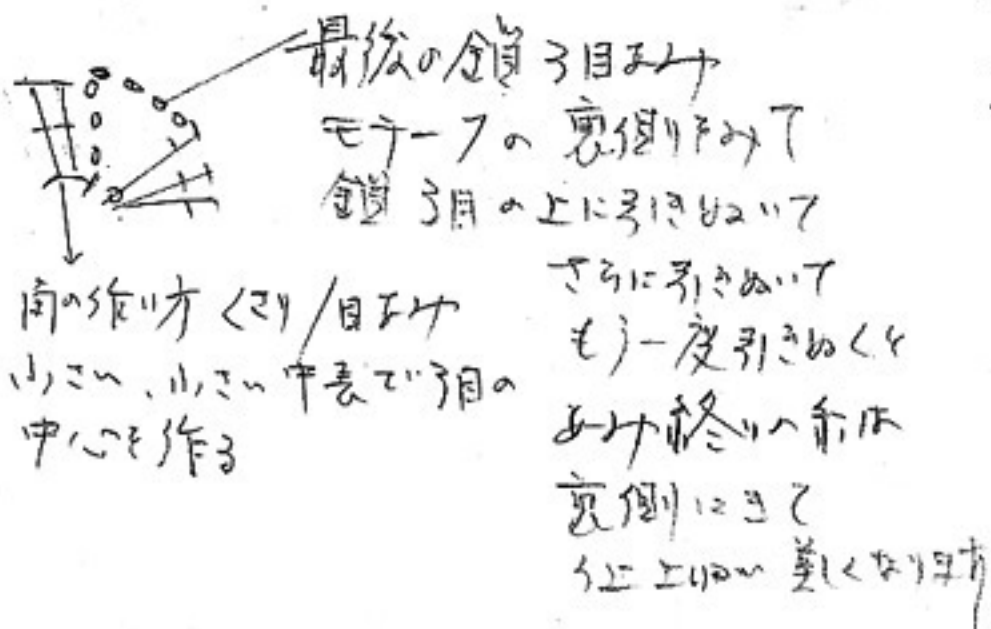 最後の鎖3目あみ
モチーフの裏側をみて
鎖3目の上に引きぬいて
さらに引きぬいて
もう一度引きぬくと
あみ終りの糸は
裏側にきて
仕上りが美しくなります
の作り方 くさり1目あみ
小さい、小さい中表で3目の
中心を作る